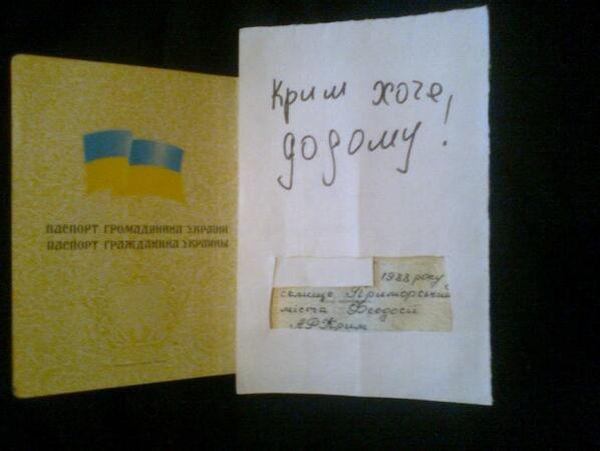 ПАСПОРТ ГРОМАДЯНИНА УКРАЇНИ
ПАСПОРТ ГРАЖДАНИНА УКРАИНЫ
Крим хоче
додому!
1988 року,
селище Приморський
міста Феодосії
АР Крим